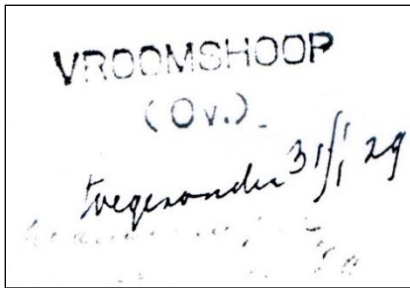 VROOMSHOOP
(Ov.)
toegezonden 31/1 29